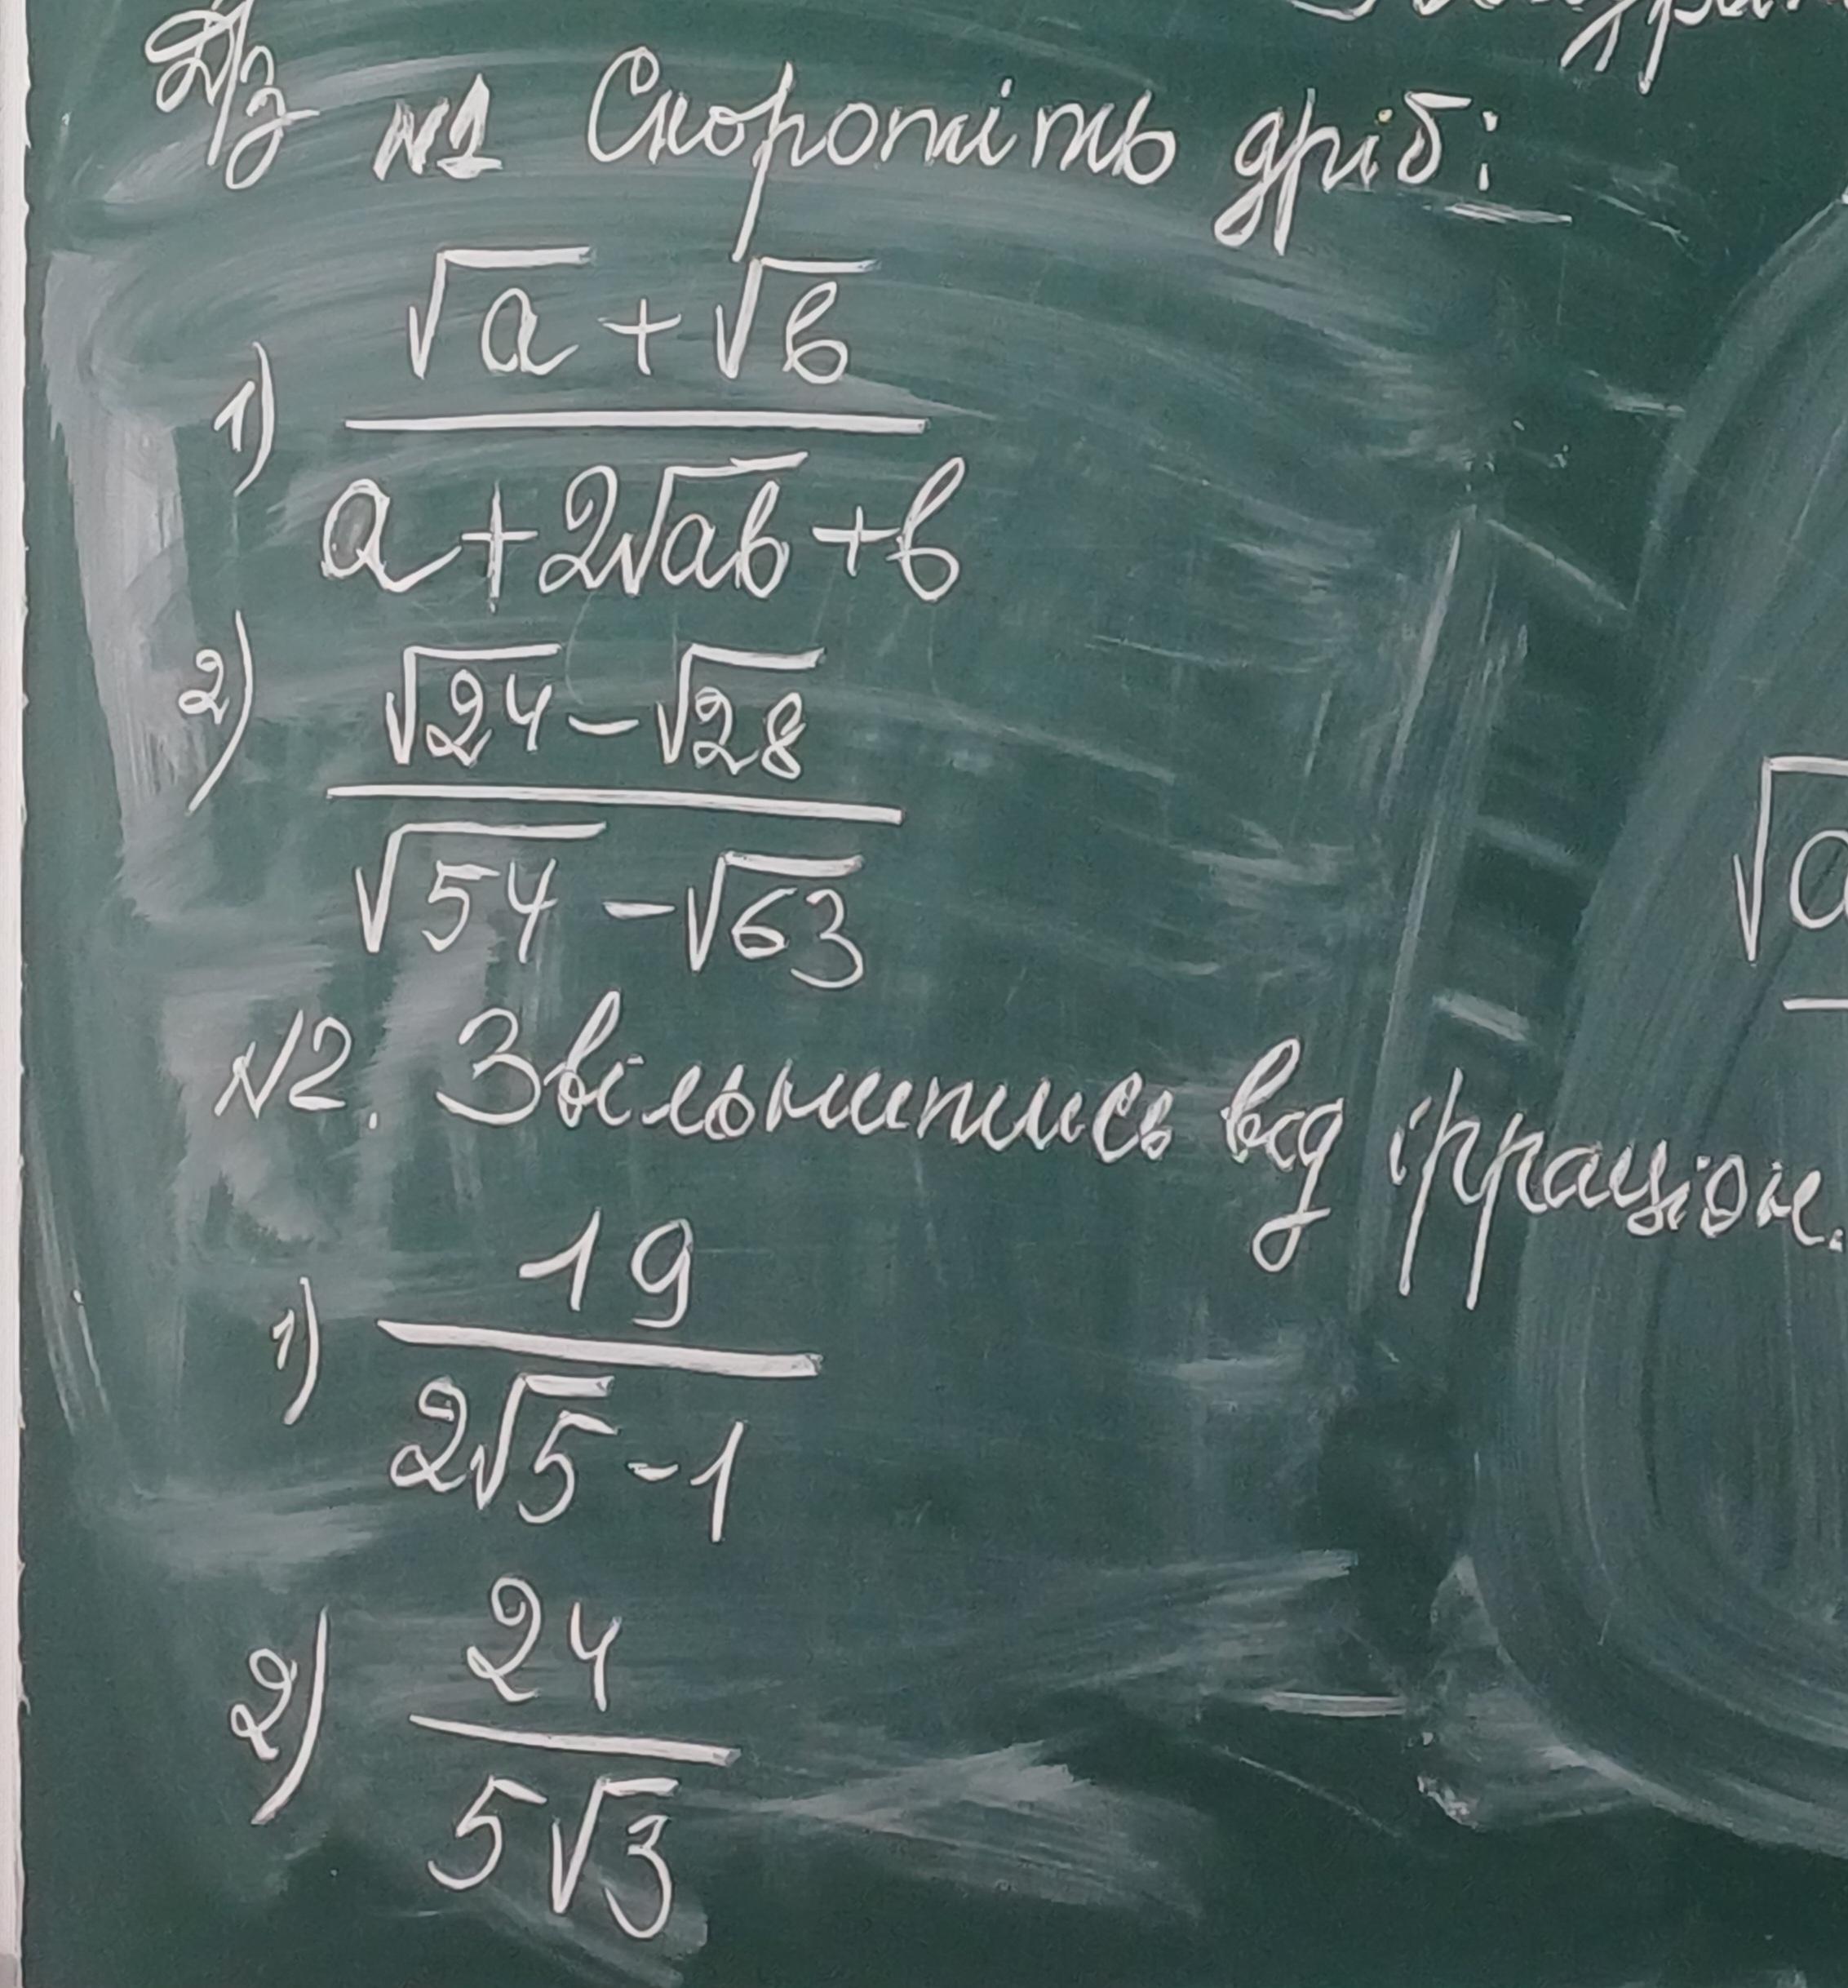 Д/з №1 Скоротіть дріб:
1) (√a + √b) / (a + 2√ab + b)
2) (√24 - √28) / (√54 - √63)
№2. Звільнитись від ірраціон.
1) 19 / (2√5 - 1)
2) 24 / (5√3)
√a